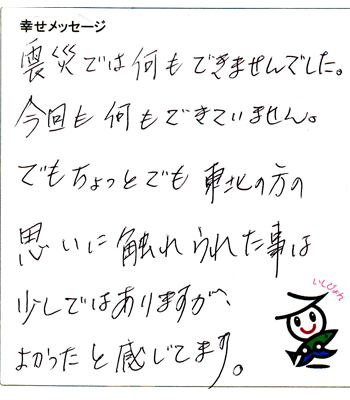 幸せメッセージ
震災では何もできませんでした。
今回も何もできていません。
でもちょっとでも東北の方の
思いに触れられた事は
少しではありますが、
よかったと感じてます。
いしぴょん